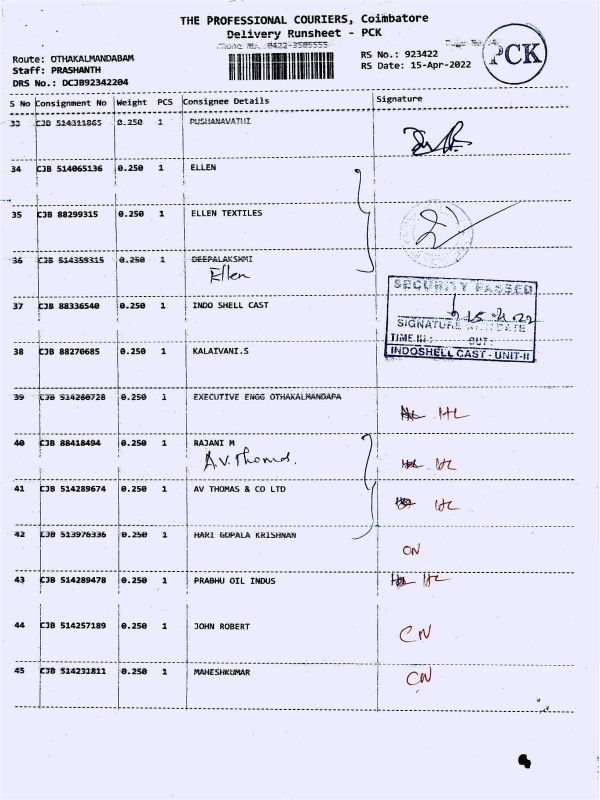 THE PROFESSIONAL COURIERS, Coimbatore
Delivery Runsheet - PCK
Phone No. 0422-3505555
PCK
Route: OTHAKALMANDABAM
Staff: PRASHANTH
DRS No.: DCJB92342204
RS No.: 923422
RS Date: 15-Apr-2022
S No Consignment No Weight PCS Consignee Details Signature
33 CJB 514311865 0.250 1 PUSHANAVATHI
34 CJB 514065136 0.250 1 ELLEN
35 CJB 88299315 0.250 1 ELLEN TEXTILES
36 CJB 514359315 0.250 1 DEEPALAKSHMI
Ellen
37 CJB 88336540 0.250 1 INDO SHELL CAST
SECURITY PASSED
SIGNATURE WITH DATE
TIME IN : OUT :
INDOSHELL CAST - UNIT-II
38 CJB 88270685 0.250 1 KALAIVANI.S
39 CJB 514260728 0.250 1 EXECUTIVE ENGG OTHAKALMANDAPA
40 CJB 88418494 0.250 1 RAJANI M
A.V. Thomas.
41 CJB 514289674 0.250 1 AV THOMAS & CO LTD
42 CJB 513976336 0.250 1 HARI GOPALA KRISHNAN CN
43 CJB 514289478 0.250 1 PRABHU OIL INDUS
44 CJB 514257189 0.250 1 JOHN ROBERT CN
45 CJB 514231811 0.250 1 MAHESHKUMAR CN